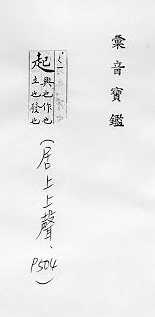 彙音寶鑑
起
興也作也
立也發也
(居上上聲、P504)